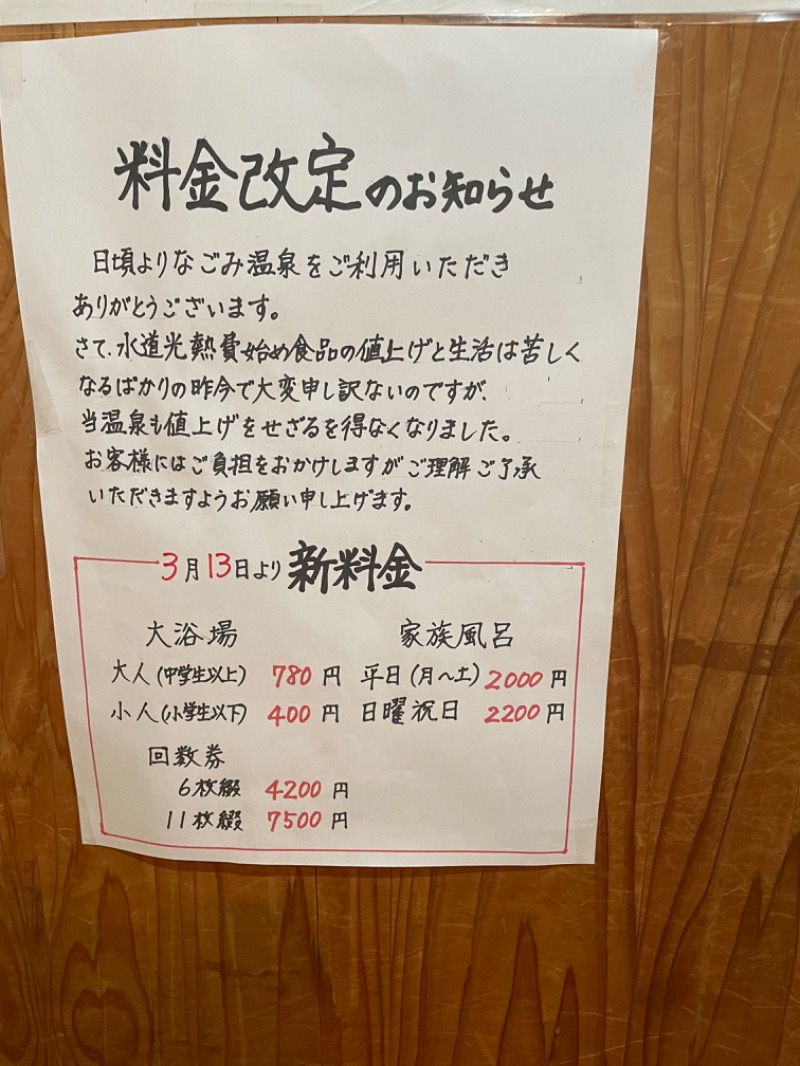 料金改定のお知らせ
日頃よりなごみ温泉をご利用いただき
ありがとうございます。
さて、水道光熱費始め食品の値上げと生活は苦しく
なるばかりの昨今で大変申し訳ないのですが、
当温泉も値上げをせざるを得なくなりました。
お客様にはご負担をおかけしますがご理解ご了承
いただきますようお願い申し上げます。
3月13日より新料金
大浴場
大人(中学生以上) 780円
小人(小学生以下) 400円
回数券
6枚綴 4200円
11枚綴 7500円
家族風呂
平日(月〜土) 2000円
日曜祝日 2200円